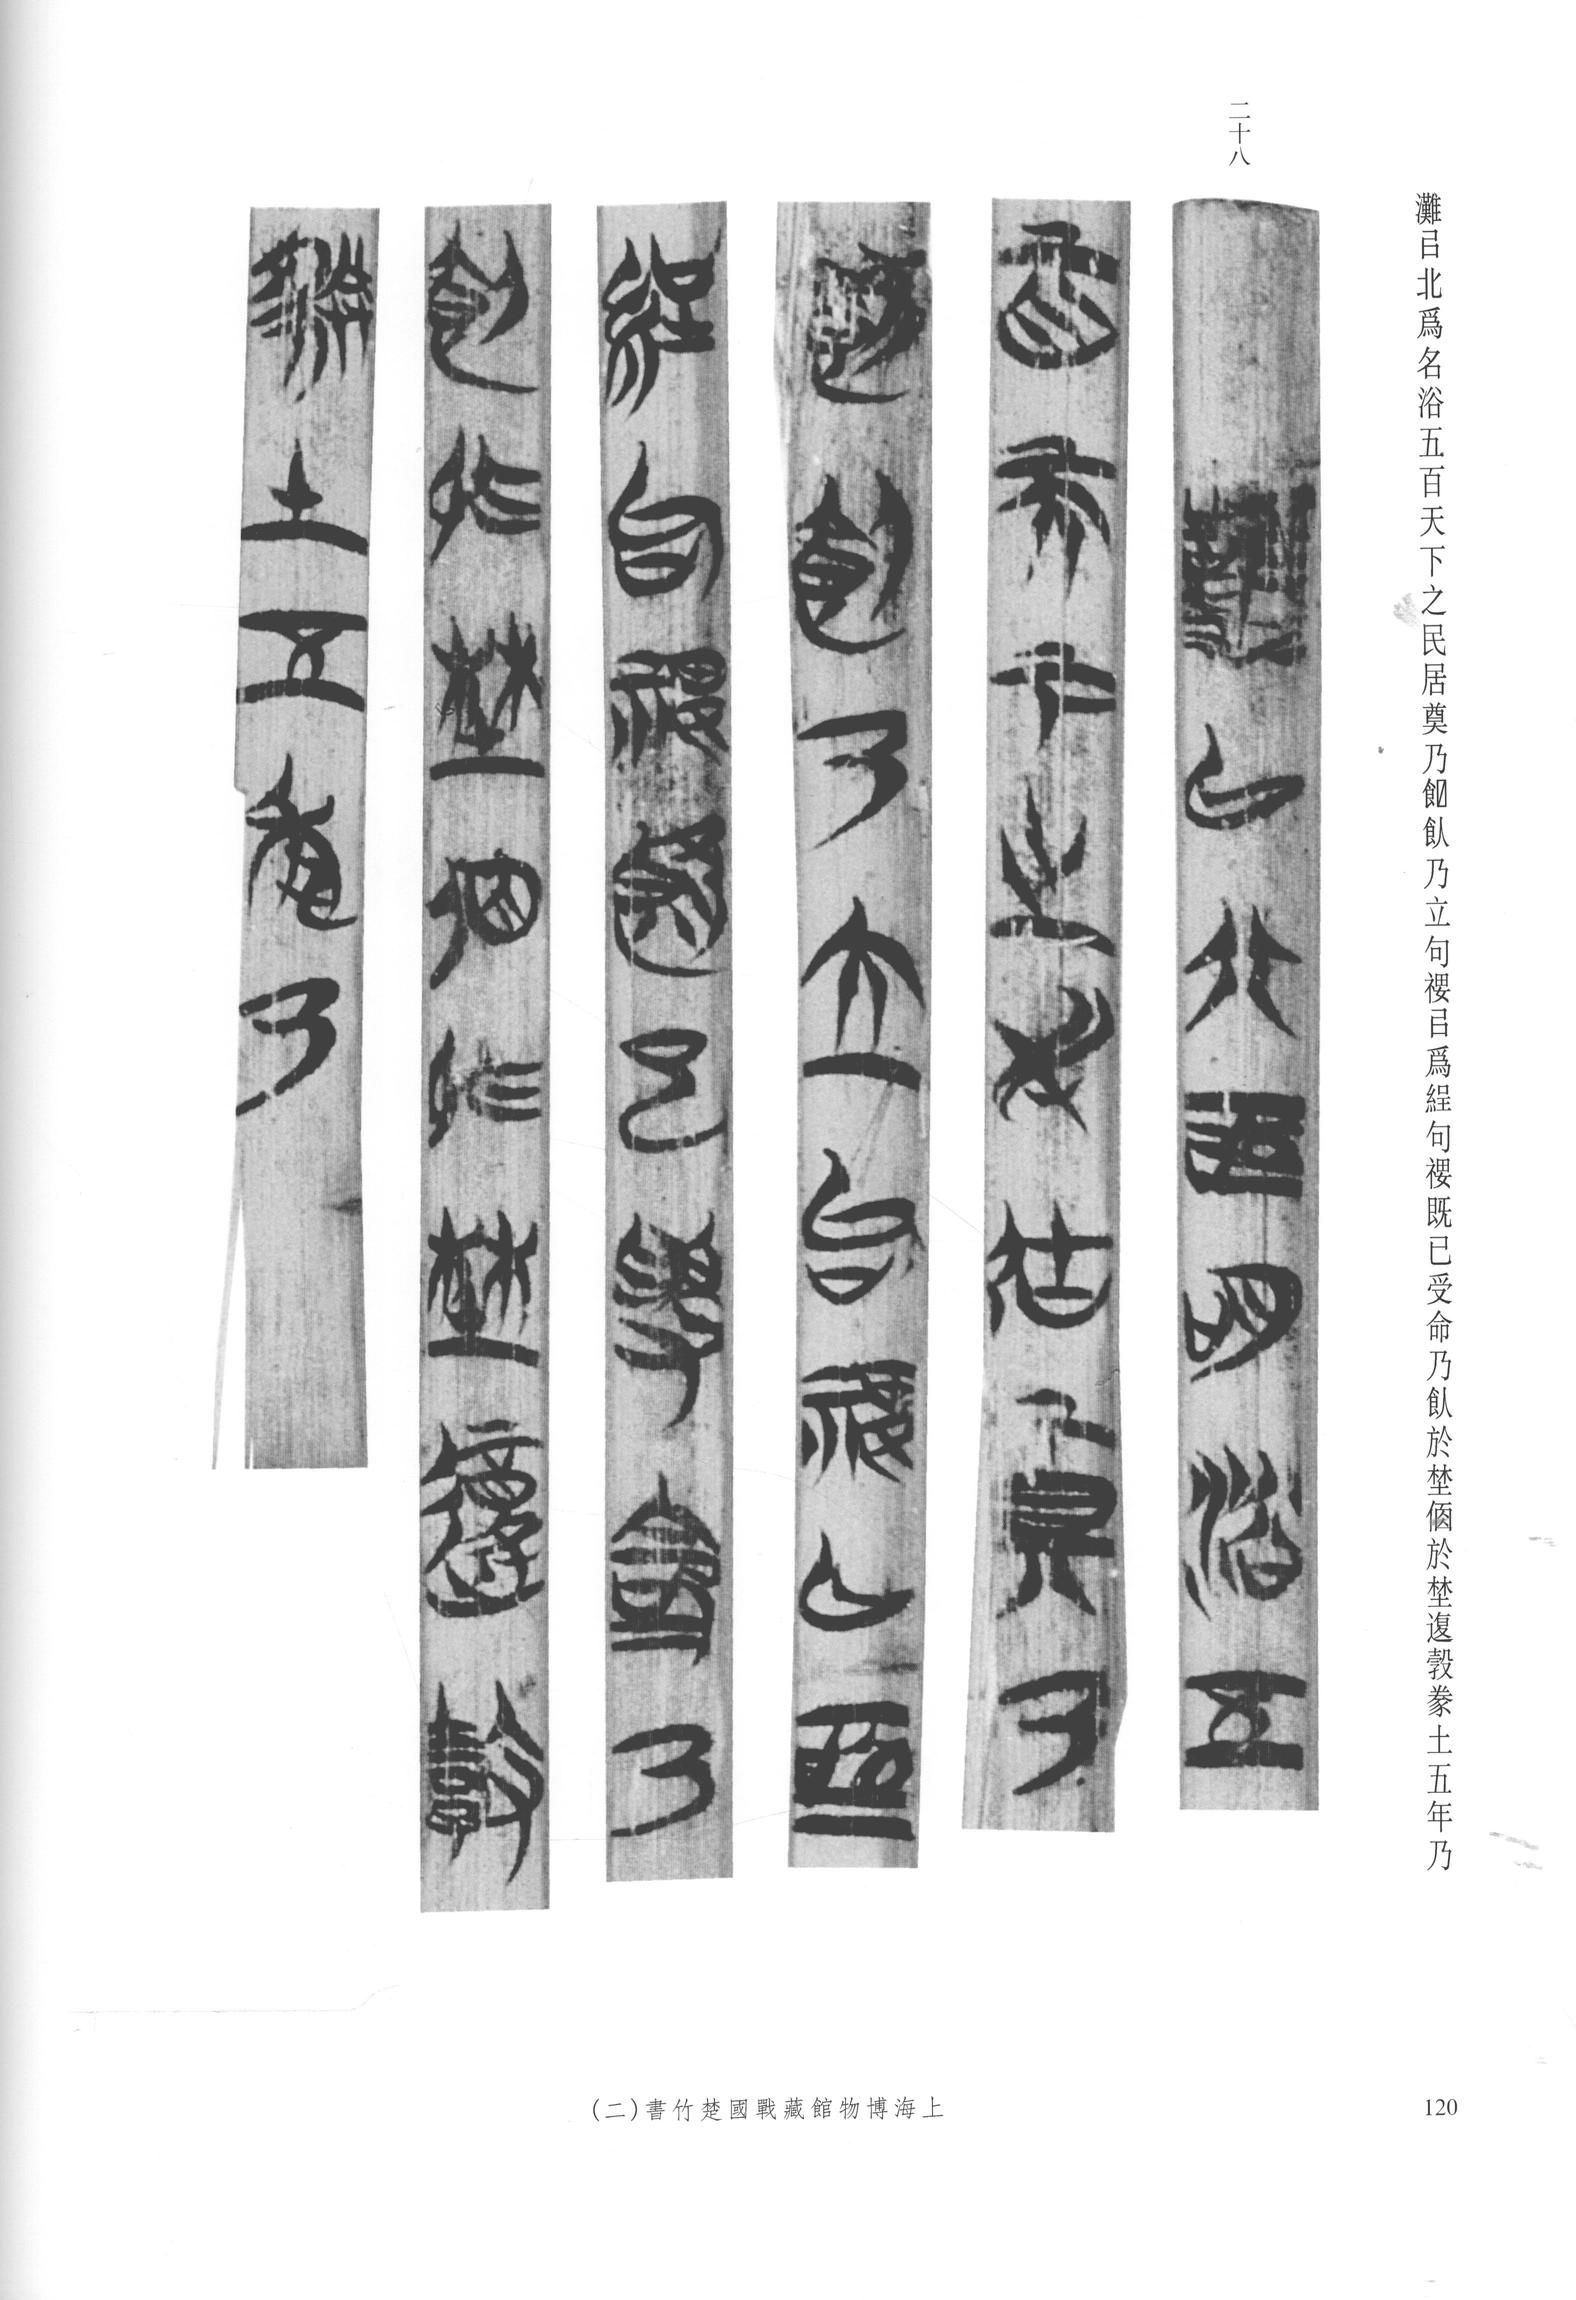 二十八
灘㠯北爲名浴五百天下之民居奠乃飤乃立句禝㠯爲緸句禝既已受命乃飤於埜㑄於埜復穀豢土五年乃
上海博物館藏戰國楚竹書(二)
120